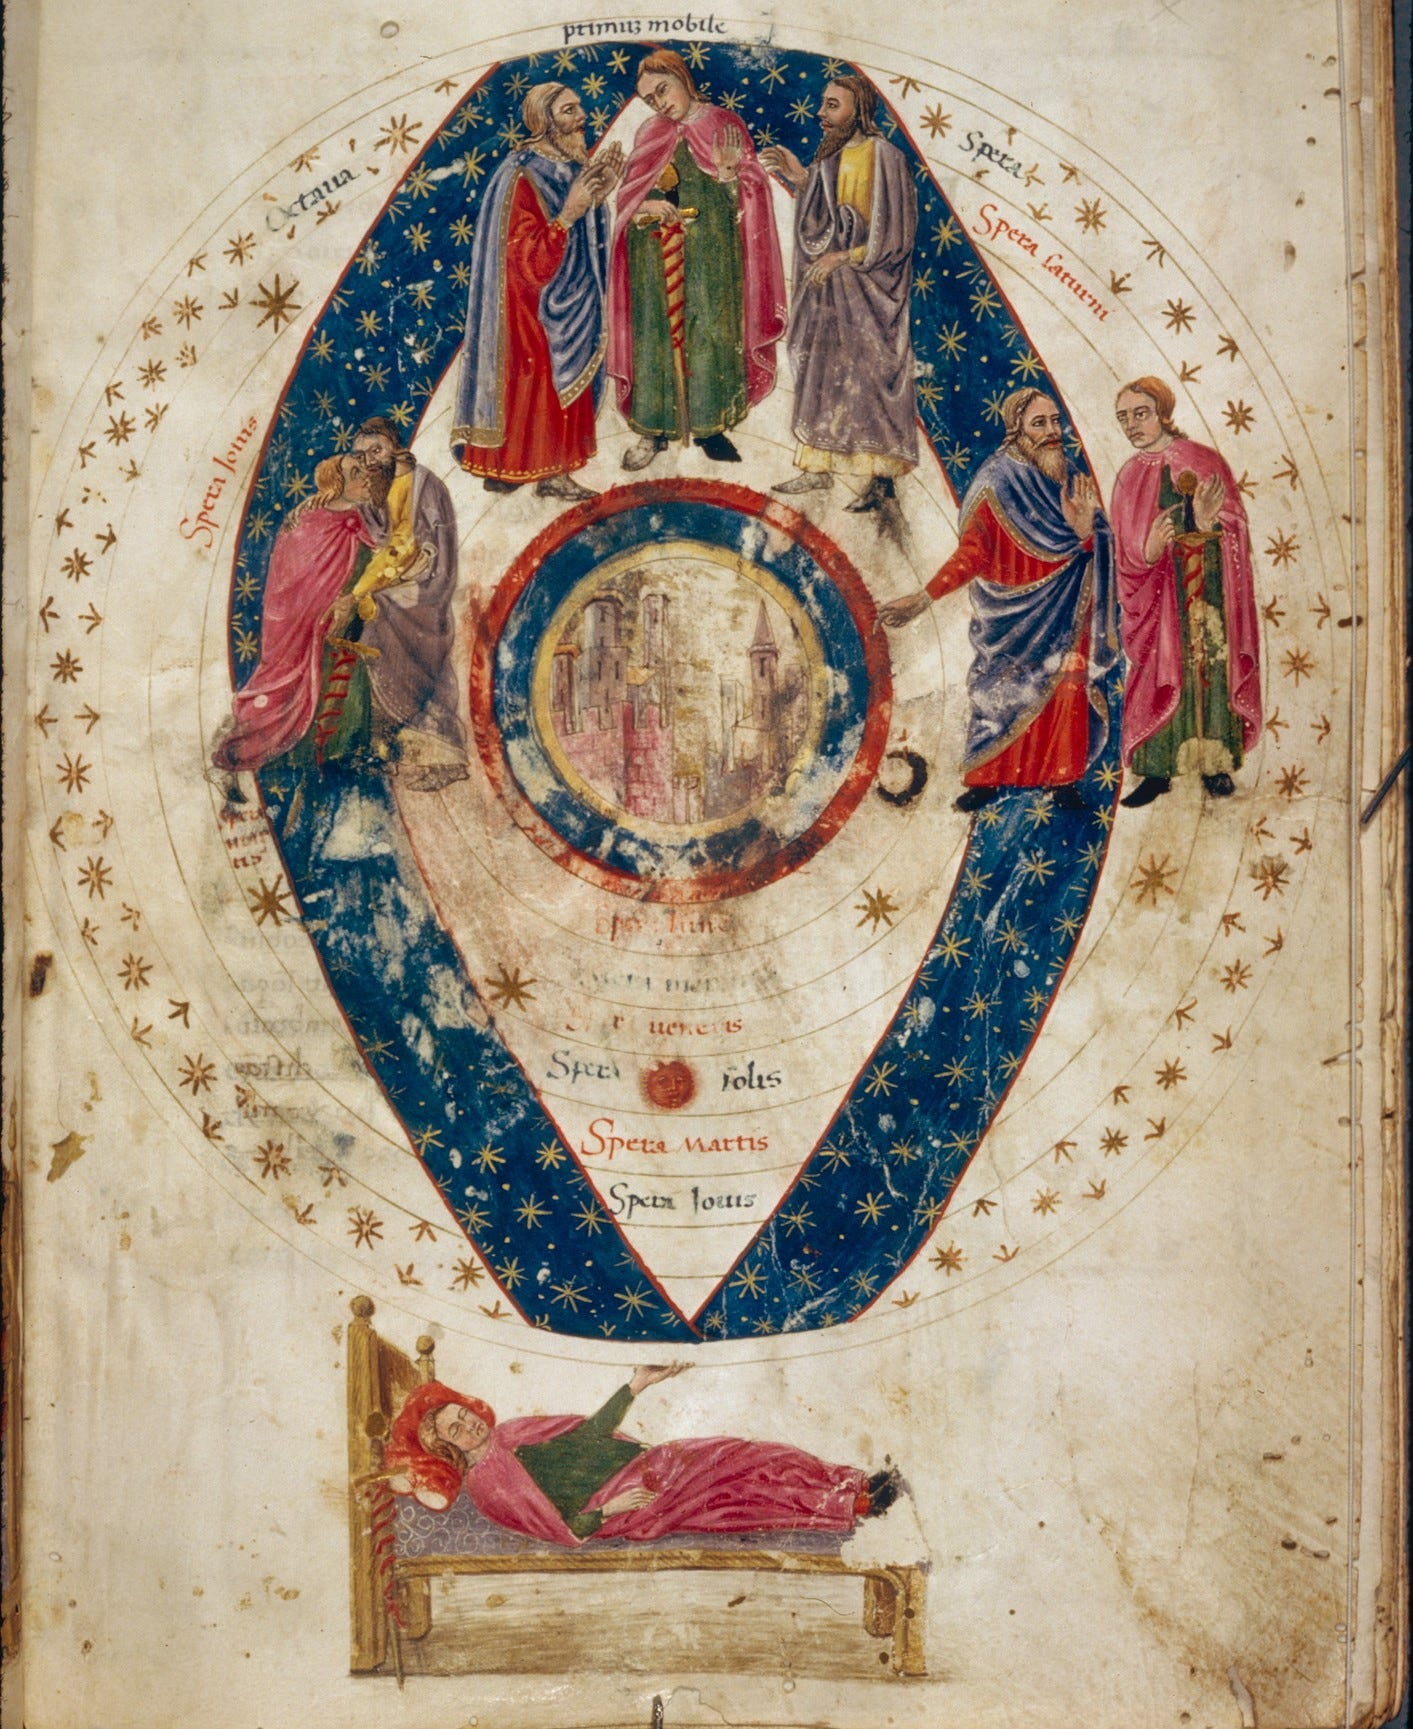 primuz mobile
Octaua
Spera
Spera saturni
Spera Iouis
Spera
lune
ueneris
Spera solis
Spera martis
Spera Iouis